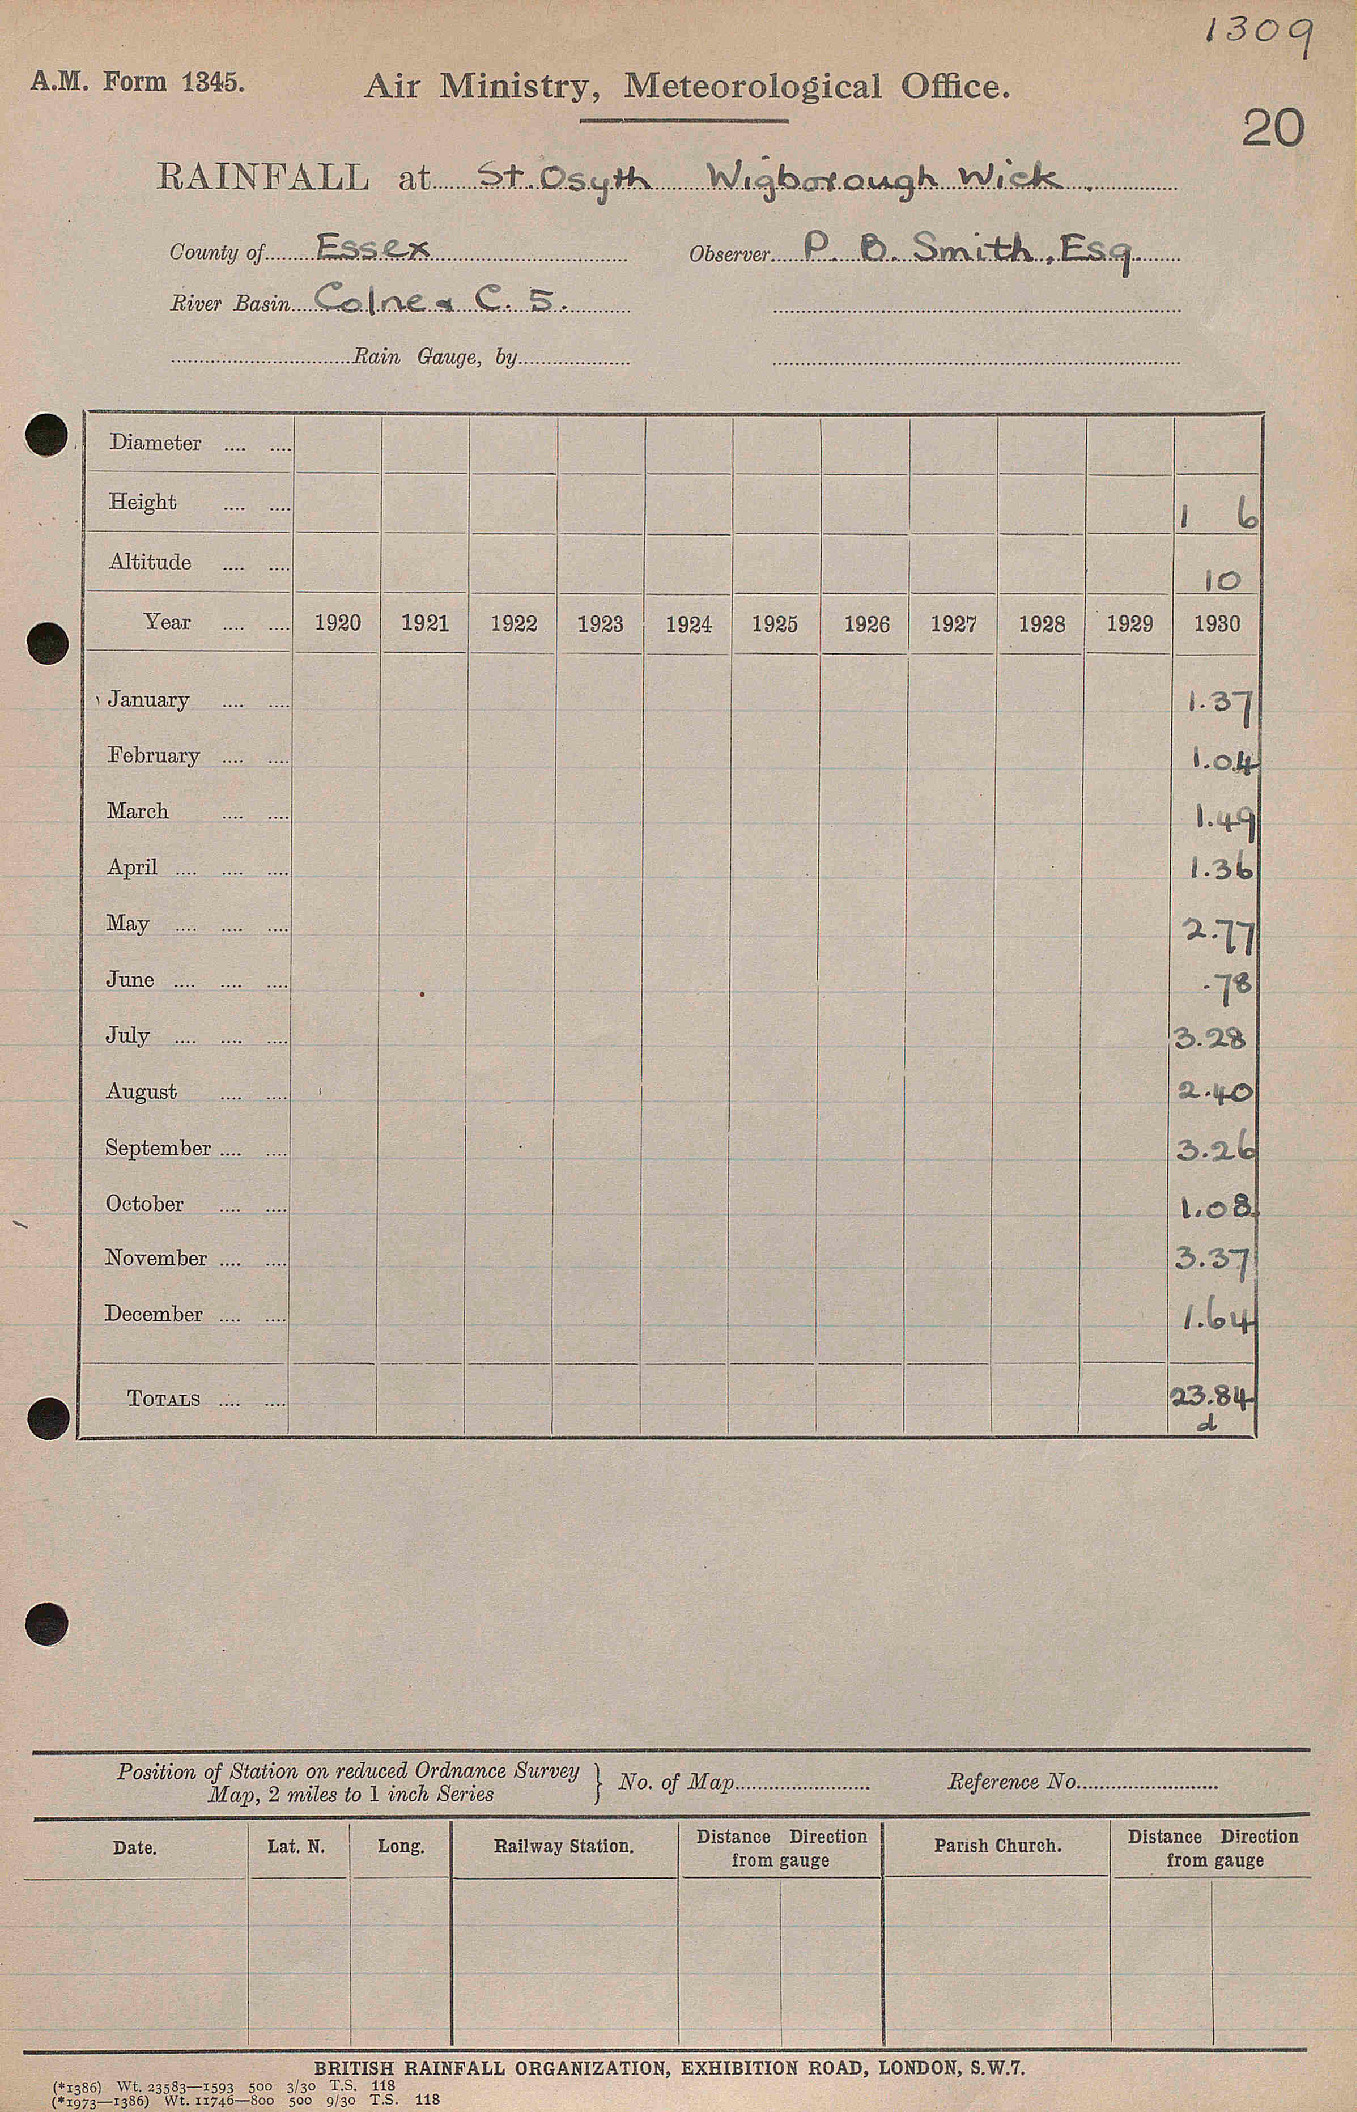 1309
A.M. Form 1345. Air Ministry, Meteorological Office.
20
RAINFALL at St. Osyth Wigborough Wick.
County of Essex Observer P. B. Smith, Esq.
River Basin Colne & C. 5.
Rain Gauge, by
Diameter .... ....
Height .... .... 1 6
Altitude .... .... 10
Year .... .... 1920 1921 1922 1923 1924 1925 1926 1927 1928 1929 1930
January .... .... 1.37
February .... .... 1.04
March .... .... 1.49
April .... .... .... 1.36
May .... .... .... 2.77
June .... .... .... .78
July .... .... .... 3.28
August .... .... 2.40
September .... .... 3.26
October .... .... 1.08
November .... .... 3.37
December .... .... 1.64
TOTALS .... .... 23.84
d
Position of Station on reduced Ordnance Survey
Map, 2 miles to 1 inch Series } No. of Map Reference No.
Date. Lat. N. Long. Railway Station. Distance Direction from gauge Parish Church. Distance Direction from gauge
BRITISH RAINFALL ORGANIZATION, EXHIBITION ROAD, LONDON, S.W.7.
(*1386) Wt. 23583—1593 500 3/30 T.S. 118
(*1973—1386) Wt. 11746—800 500 9/30 T.S. 118